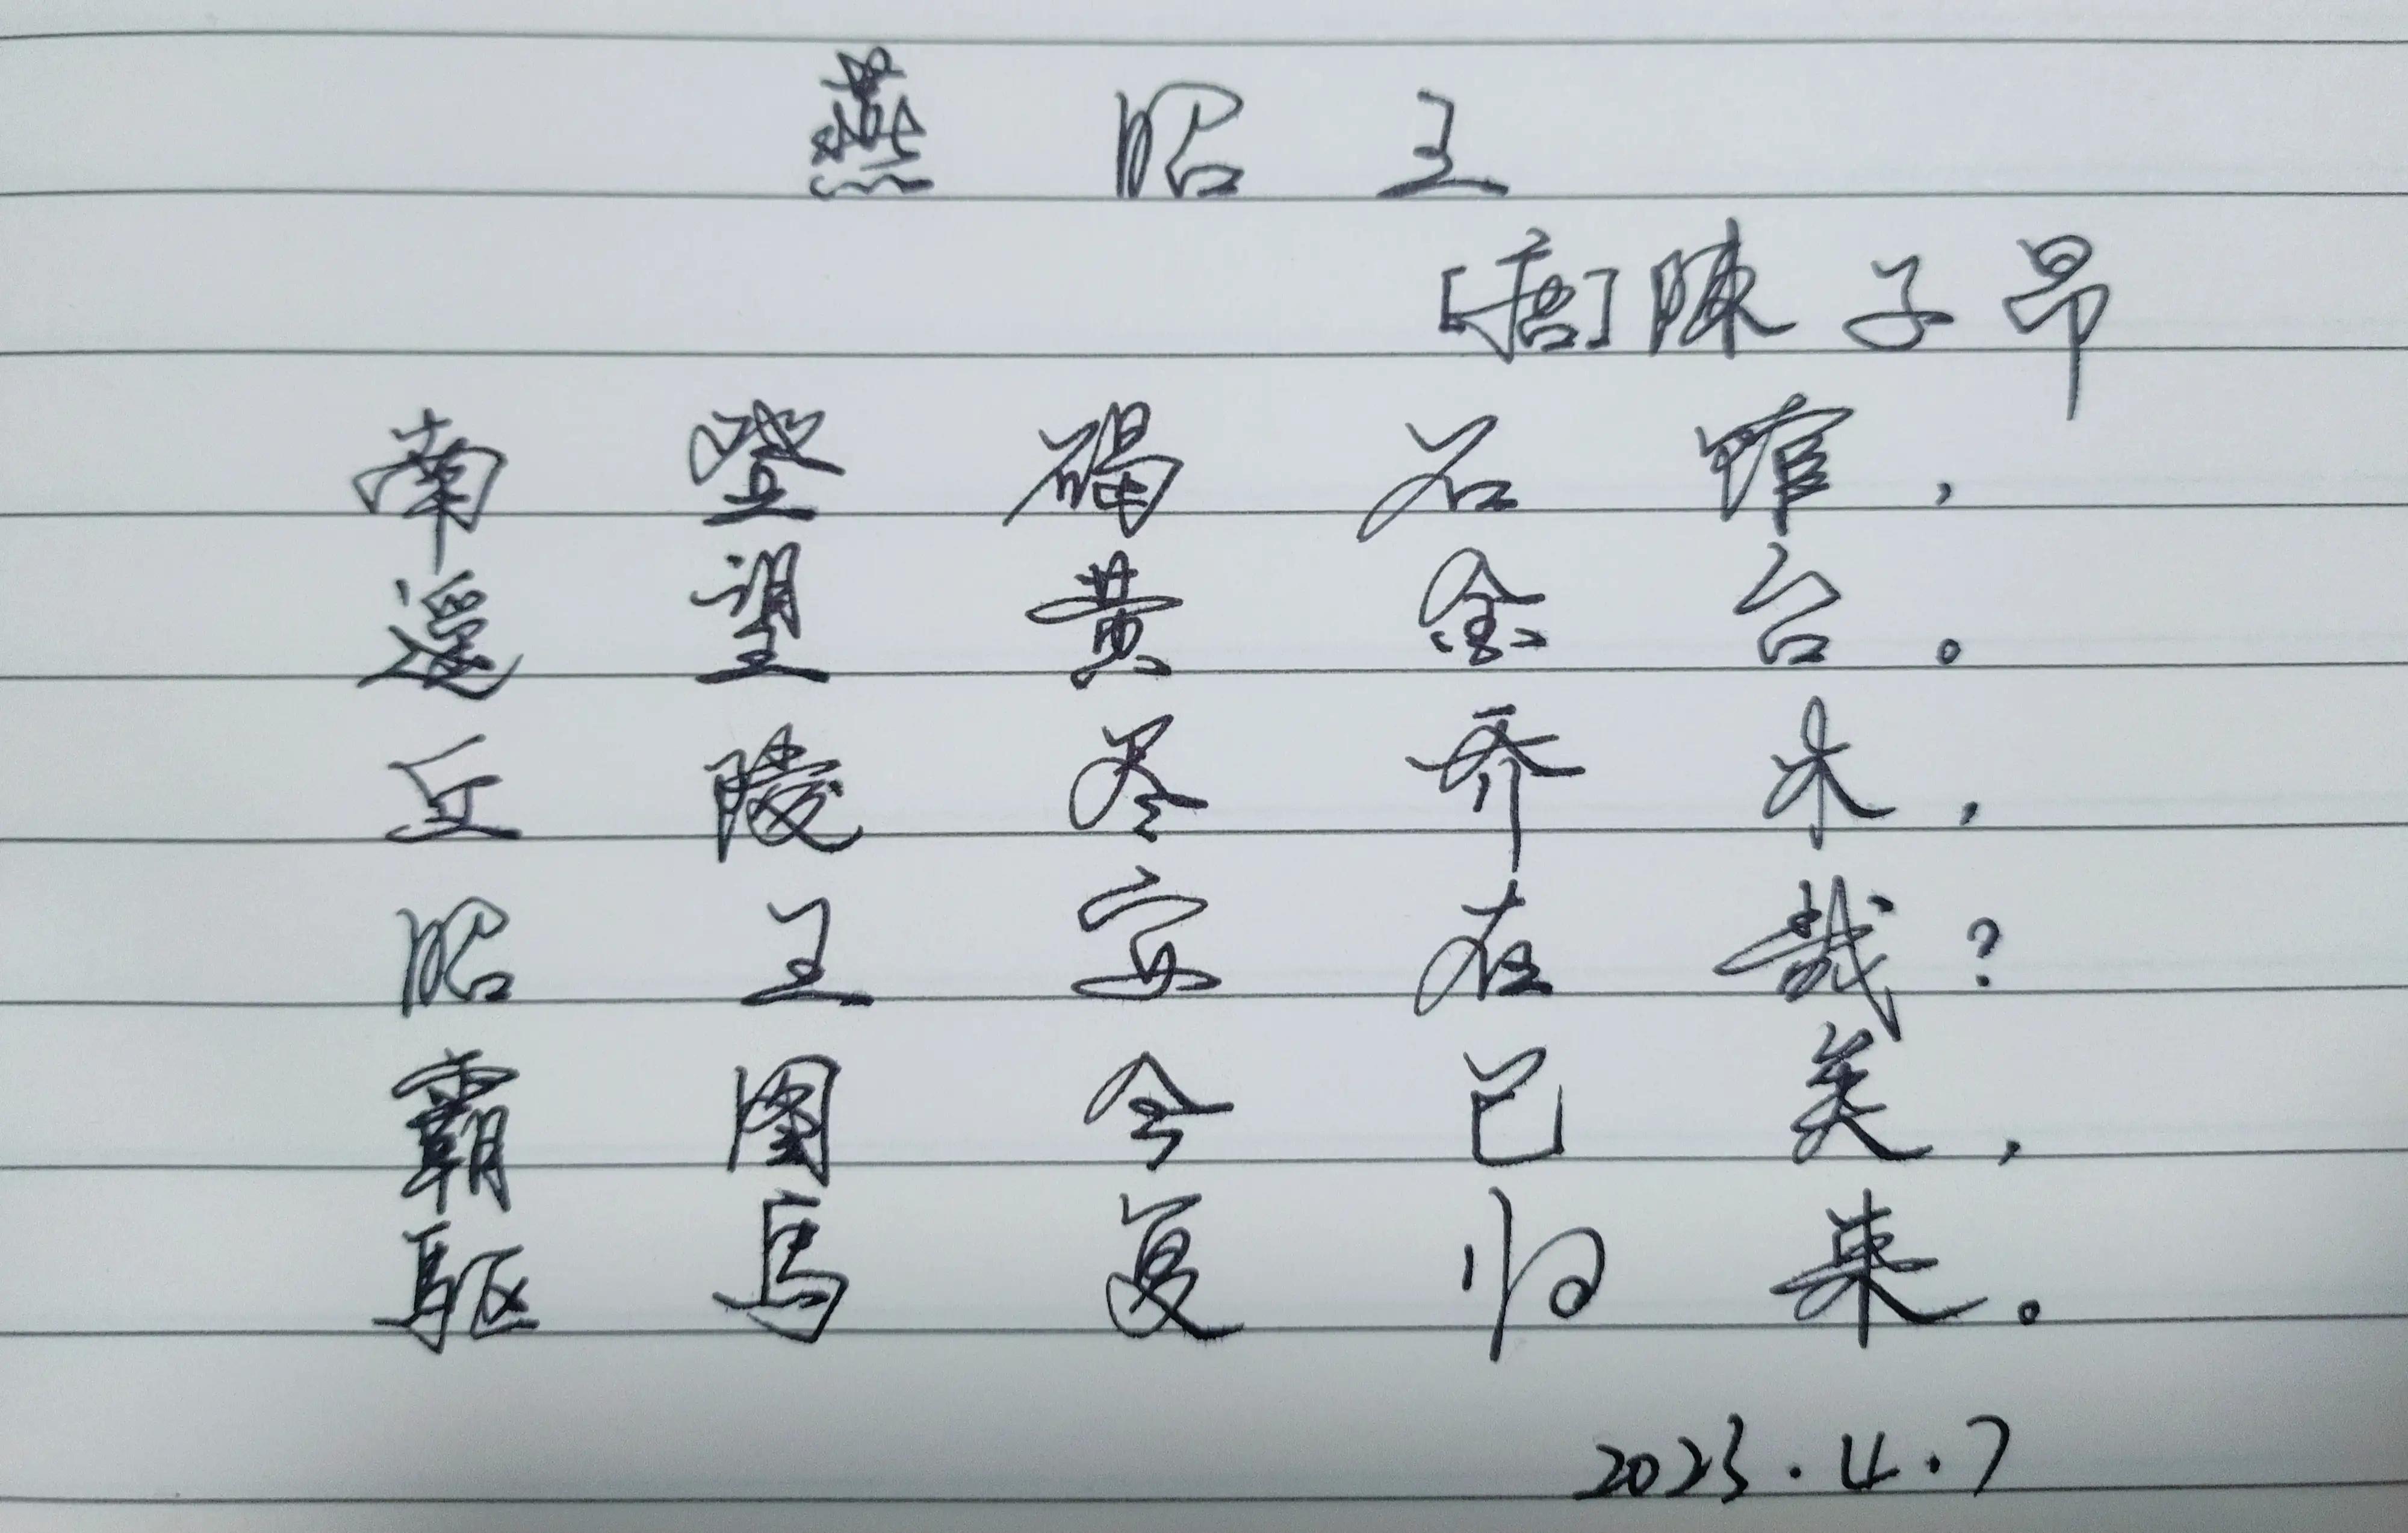 燕昭王
[唐]陳子昂
南登碣石馆，
遥望黄金台。
丘陵尽乔木，
昭王安在哉？
霸图今已矣，
驱马复归来。
2023.4.7